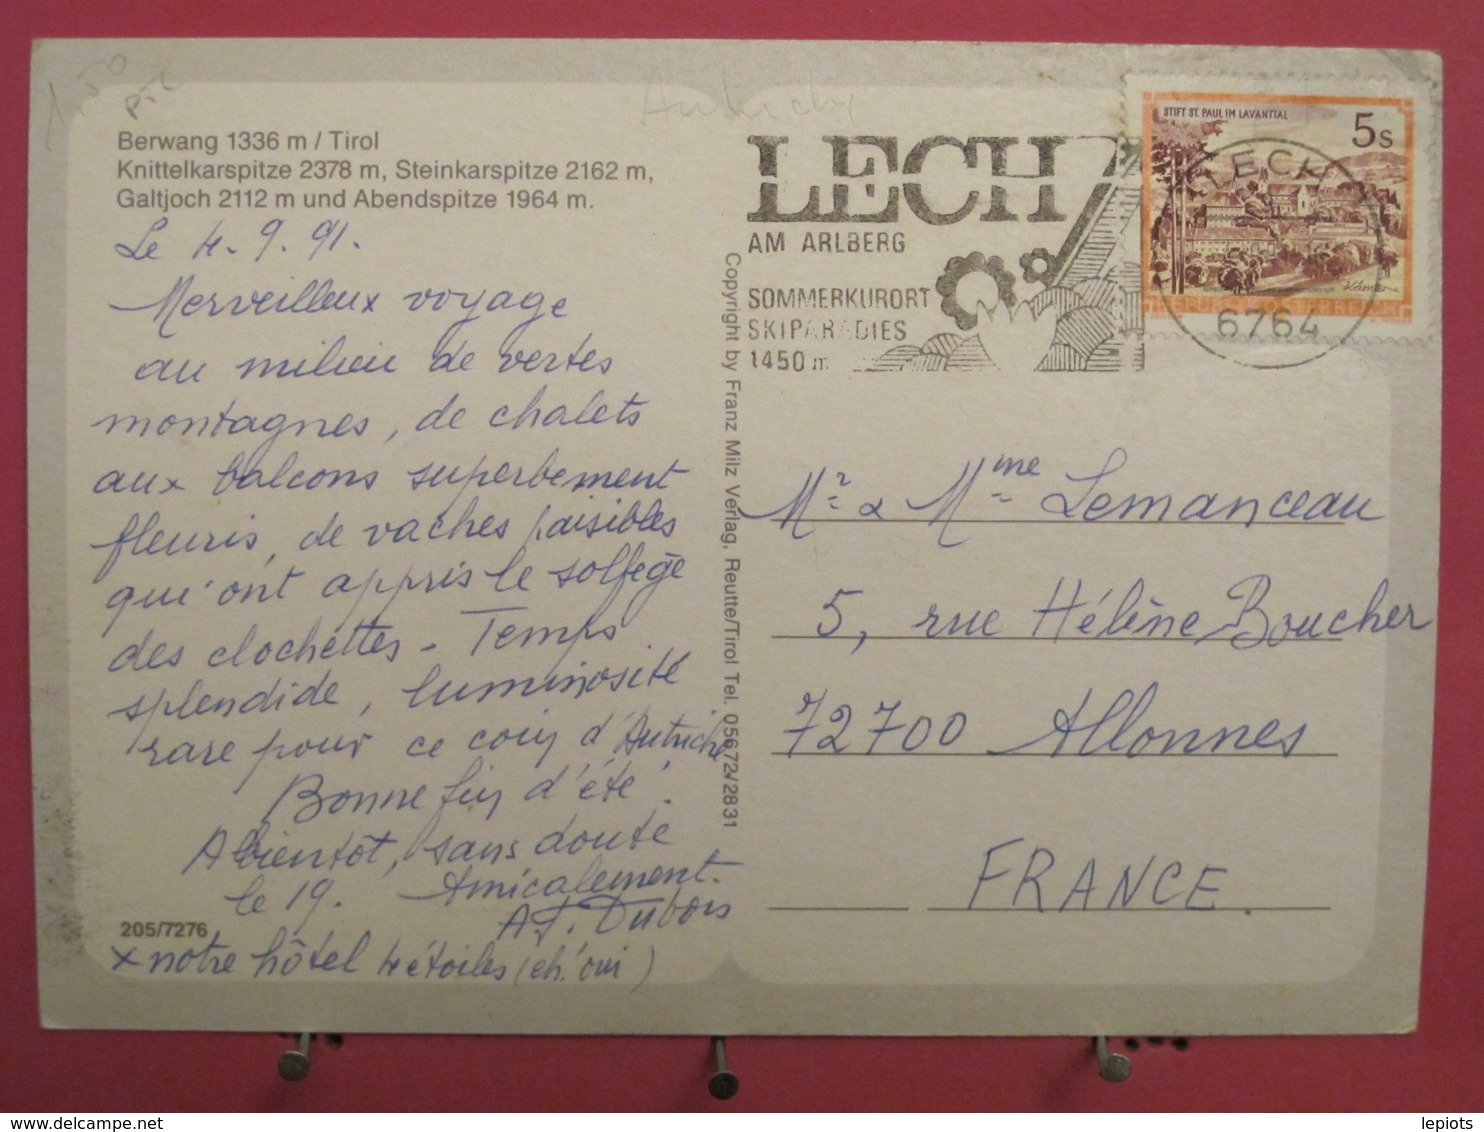 1.50
Autriche
Berwang 1336 m / Tirol
Knittelkarspitze 2378 m, Steinkarspitze 2162 m,
Galtjoch 2112 m und Abendspitze 1964 m.
Le 4.9.91.
Merveilleux voyage
au milieu de vertes
montagnes, de chalets
aux balcons superbement
fleuris, de vaches paisibles
qui ont appris le solfège
des clochettes - Temps
splendide, luminosité
rare pour ce coin d'Autriche
Bonne fin d'été.
A bientôt, sans doute
le 19. Amicalement.
A.J. Dubois
205/7276
x notre hôtel 4 étoiles (eh! oui)
Copyright by Franz Milz Verlag, Reutte/Tirol Tel. 05672/2831
LECH
AM ARLBERG
SOMMERKURORT
SKIPARADIES
1450 m
STIFT ST. PAUL IM LAVANTTAL
5s
REPUBLIK ÖSTERREICH
LECH
6764
Mr & Mme Lemanceau
5, rue Hélène Boucher
72700 Allonnes
FRANCE.
lepiots